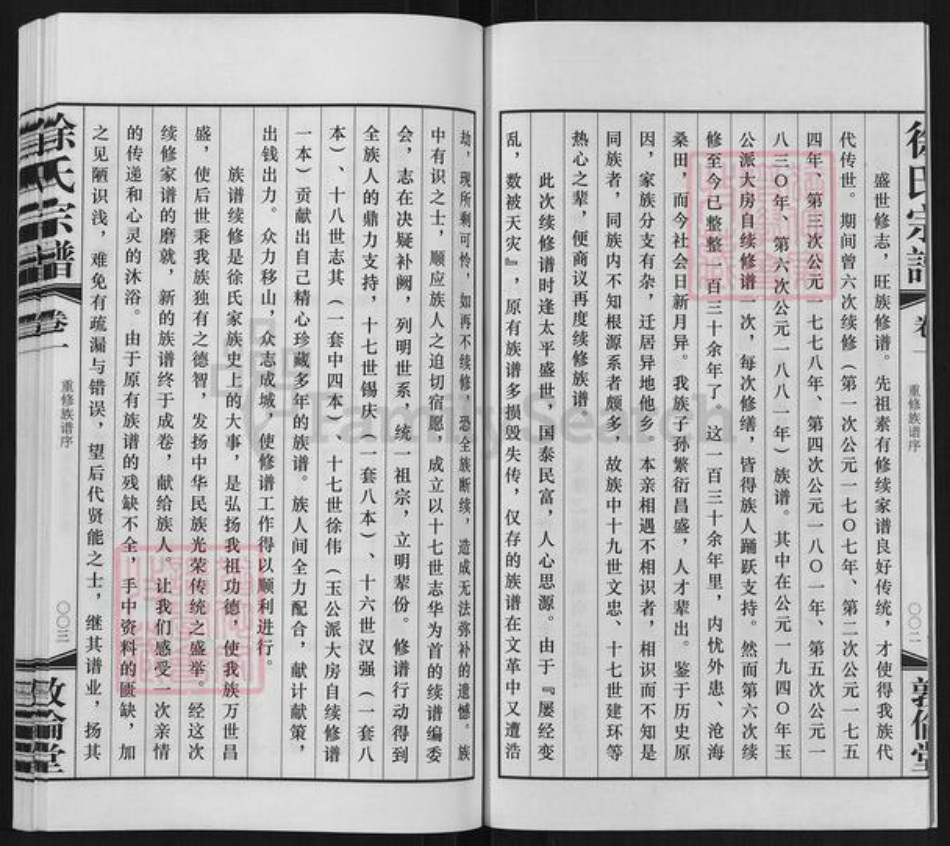 徐氏宗谱
卷一
重修族谱序
〇〇二
敦伦堂
盛世修志，旺族修谱。先祖素有修续家谱良好传统，才使得我族代
代传世。期间曾六次续修（第一次公元一七〇七年、第二次公元一七五
四年、第三次公元一七七八年、第四次公元一八〇一年、第五次公元一
八三〇年、第六次公元一八八一年）族谱。其中在公元一九四〇年玉
公派大房自续修谱一次，每次修缮，皆得族人踊跃支持。然而第六次续
修至今已整整一百三十余年了，这一百三十余年里，内忧外患、沧海
桑田，而今社会日新月异。我族子孙繁衍昌盛，人才辈出。鉴于历史原
因，家族分支有杂，迁居异地他乡，本亲相遇不相识者，相识而不知是
同族者，同族内不知根源系者颇多，故族中十九世文忠、十七世建环等
热心之辈，便商议再度续修族谱
此次续修谱时逢太平盛世，国泰民富，人心思源。由于『屡经变
乱，数被天灾』，原有族谱多损毁失传，仅存的族谱在文革中又遭浩
劫，现所剩可怜，如再不续修，恐全族断续，造成无法弥补的遗憾。族
中有识之士，顺应族人之迫切宿愿，成立以十七世志华为首的续谱编委
会，志在决疑补阙，列明世系，统一祖宗，立明辈份。修谱行动得到
全族人的鼎力支持，十七世锡庆（一套八本）、十六世汉强（一套八
本）、十八世志其（一套中四本）、十七世徐伟（玉公派大房自续修谱
一本）贡献出自己精心珍藏多年的族谱。族人间全力配合，献计献策，
出钱出力。众力移山，众志成城，使修谱工作得以顺利进行。
族谱续修是徐氏家族史上的大事，是弘扬我祖功德，使我族万世昌
盛，使后世秉我族独有之德智，发扬中华民族光荣传统之盛举。经这次
续修家谱的磨就，新的族谱终于成卷，献给族人。让我们感受一次亲情
的传递和心灵的沐浴。由于原有族谱的残缺不全，手中资料的匮缺，加
之见陋识浅，难免有疏漏与错误，望后代贤能之士，继其谱业，扬其
徐氏宗谱
卷一
重修族谱序
〇〇三
敦伦堂
FamilySearch